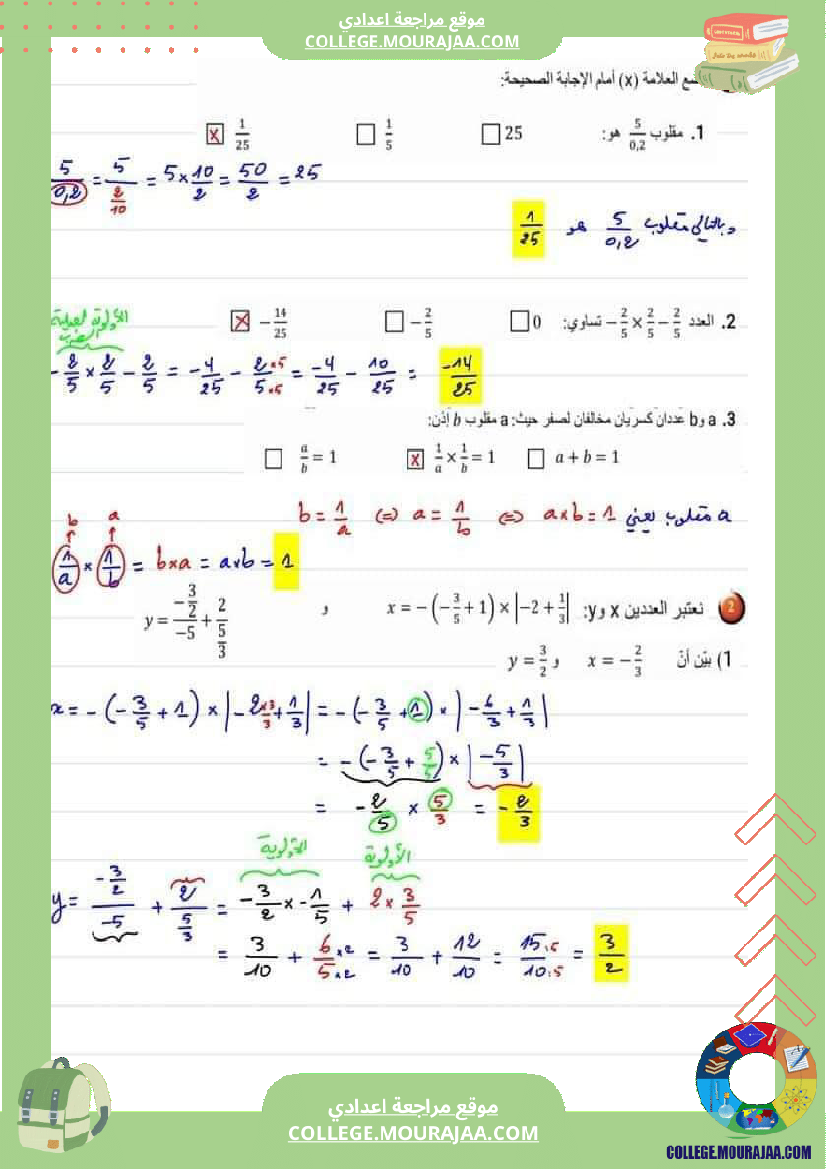 موقع مراجعة اعدادي
COLLEGE.MOURAJAA.COM
ضع العلامة (x) أمام الإجابة الصحيحة:
1. مقلوب 5/0,2 هو: ☐ 25 ☐ 1/5 ☒ 1/25
5/0,2 = 5/(2/10) = 5 × 10/2 = 50/2 = 25
وبالتالي مقلوب 5/0,2 هو 1/25
2. العدد −2/5 × 2/5 − 2/5 تساوي: ☐ 0 ☐ −2/5 ☒ −14/25
الأولوية لعملية الضرب
-2/5 × 2/5 − 2/5 = −4/25 − 2×5/5×5 = −4/25 − 10/25 = −14/25
3. a وb عددان كسريان مخالفان لصفر حيث: a مقلوب b إذن:
☐ a + b = 1 ☒ 1/a × 1/b = 1 ☐ a/b = 1
a مقلوب b يعني a×b = 1 ⇔ a = 1/b ⇔ b = 1/a
b a
1/a × 1/b = b×a = a×b = 1
2 نعتبر العددين x وy: x = −(−3/5 + 1) × |−2 + 1/3| و y = (−3/2)/−5 + 2/(5/3)
1) بيّن أنّ x = −2/3 و y = 3/2
x = −(−3/5 + 1) × |−2×3/3 + 1/3| = −(−3/5 + 1) × |−6/3 + 1/3|
= −(−3/5 + 5/5) × |−5/3|
= −2/5 × 5/3 = −2/3
الأولوية الأولوية
y = (−3/2)/−5 + 2/(5/3) = −3/2 × −1/5 + 2 × 3/5
= 3/10 + 6×2/5×2 = 3/10 + 12/10 = 15:5/10:5 = 3/2
موقع مراجعة اعدادي
COLLEGE.MOURAJAA.COM
COLLEGE.MOURAJAA.COM